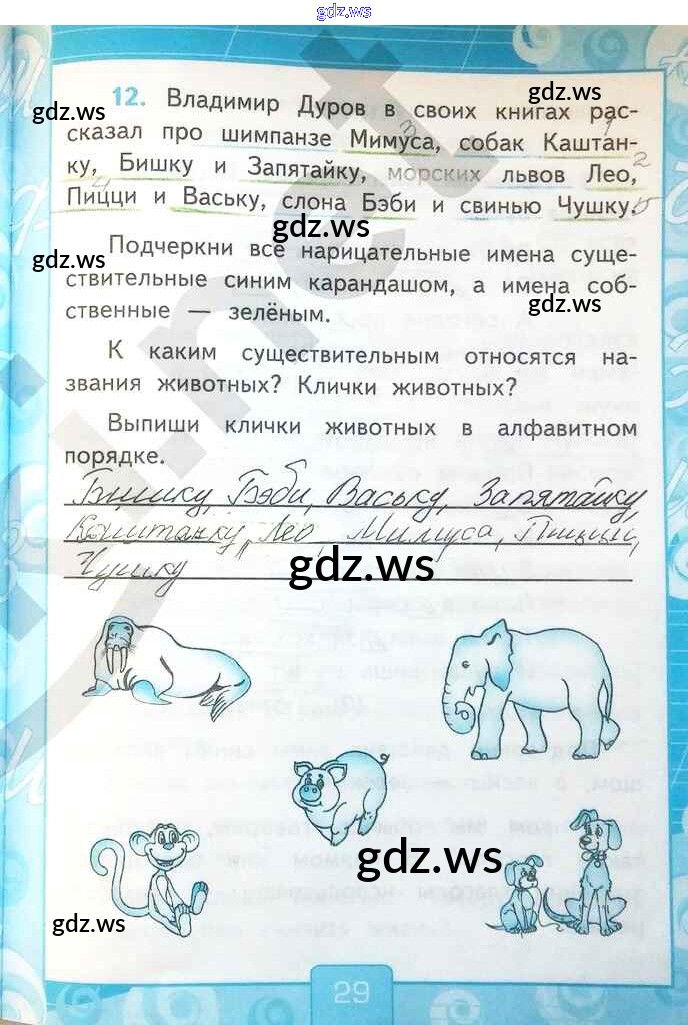 gdz.ws
12. Владимир Дуров в своих книгах рас-
сказал про шимпанзе Мимуса, собак Каштан-
ку, Бишку и Запятайку, морских львов Лео,
Пицци и Ваську, слона Бэби и свинью Чушку.
gdz.ws
gdz.ws
gdz.ws
Подчеркни все нарицательные имена суще-
ствительные синим карандашом, а имена соб-
ственные — зелёным.
gdz.ws
gdz.ws
К каким существительным относятся на-
звания животных? Клички животных?
Выпиши клички животных в алфавитном
порядке.
Бишку, Бэби, Ваську, Запятайку,
Каштанку, Лео, Мимуса, Пицци,
Чушку
gdz.ws
gdz.ws
gdz.ws
gdz.ws
29